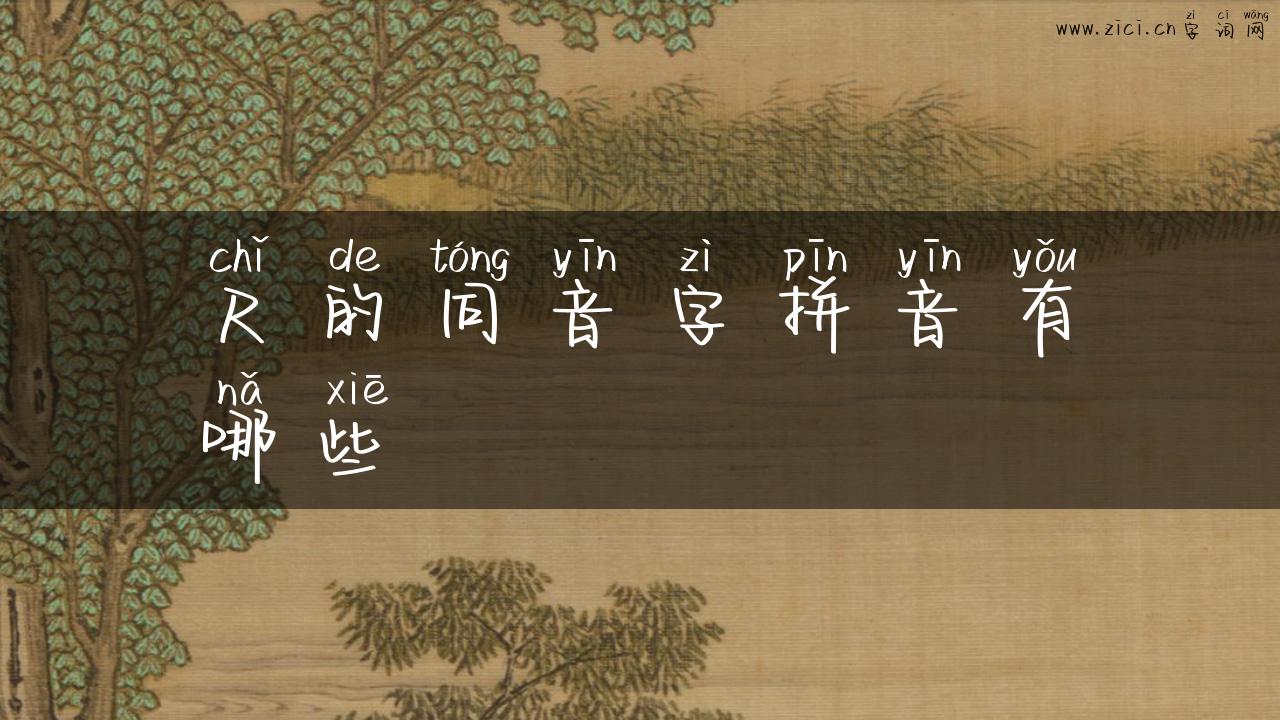 zì cí wǎng
www.zici.cn 字词网
chǐ de tóng yīn zì pīn yīn yǒu
尺的同音字拼音有
nǎ xiē
哪些